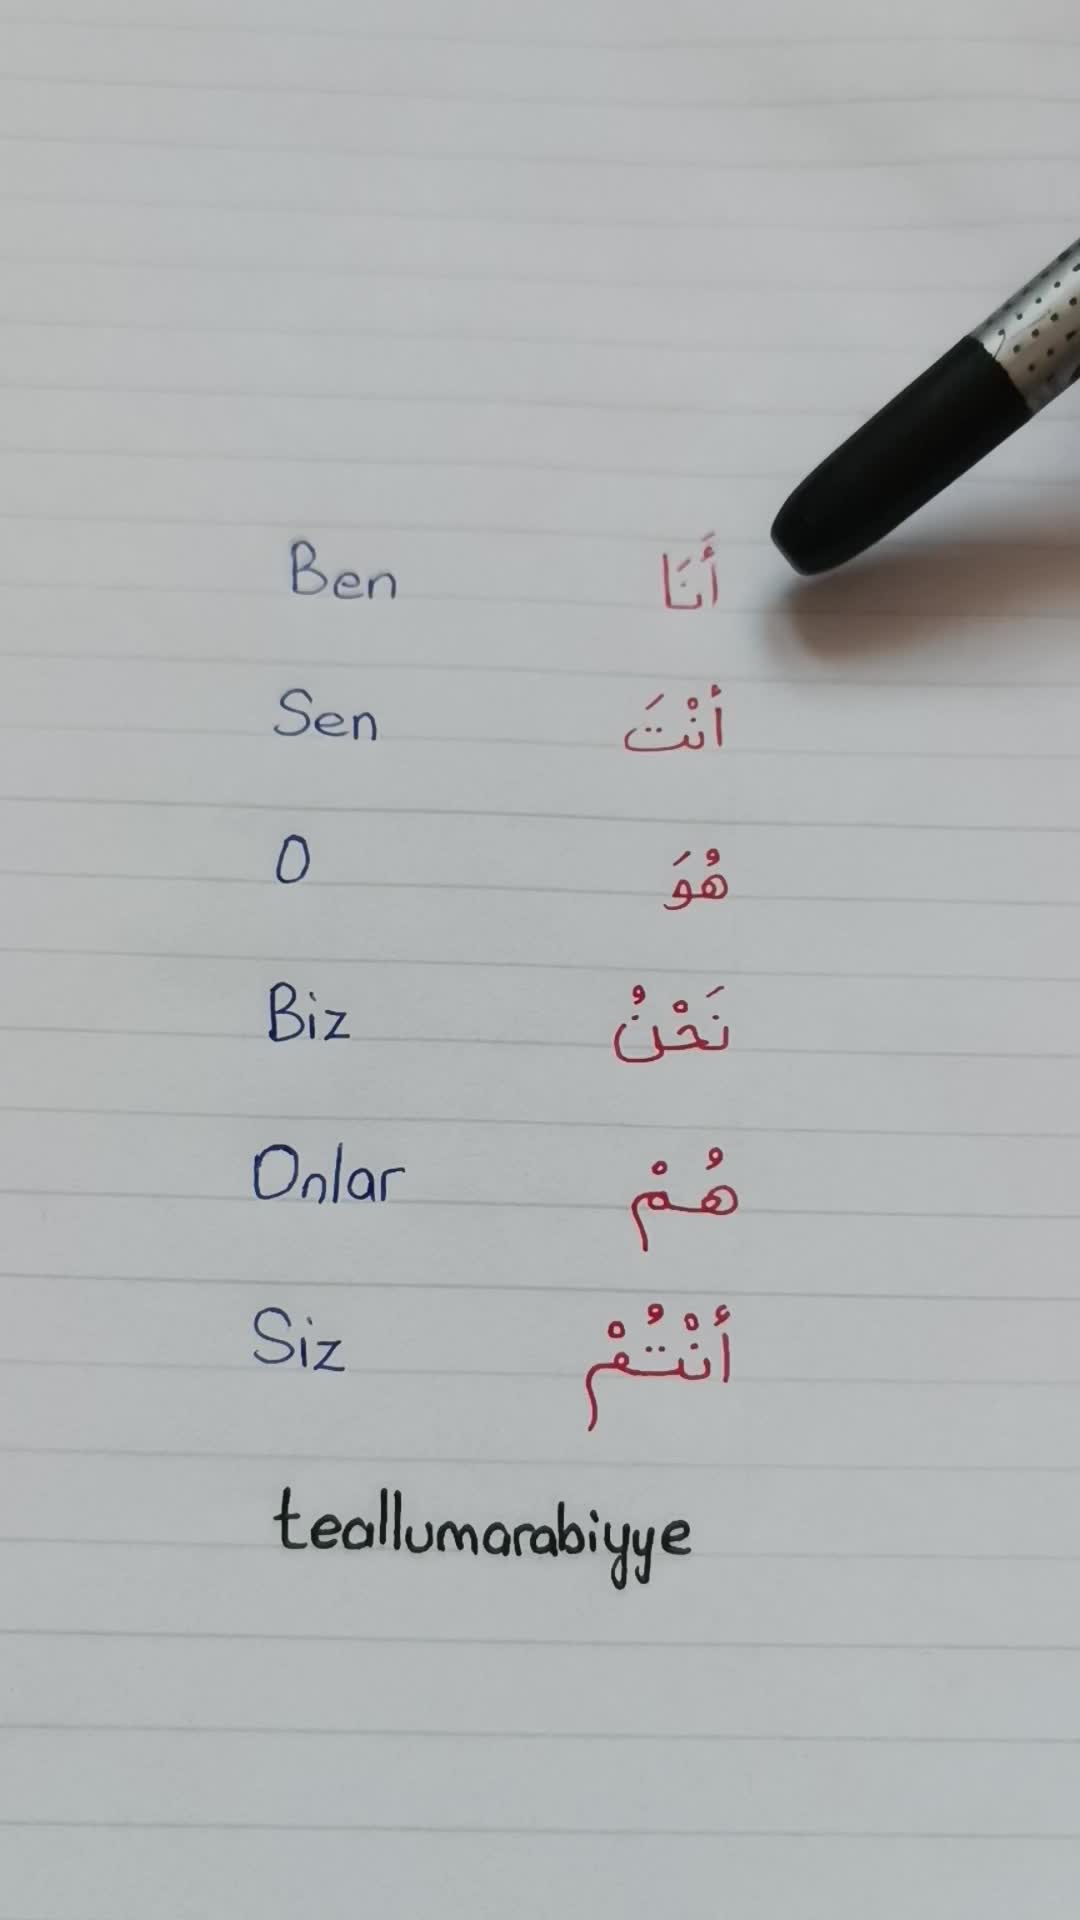 Ben أَنَا
Sen أنْتَ
O هُوَ
Biz نَحْنُ
Onlar هُمْ
Siz أنْتُمْ
teallumarabiyye